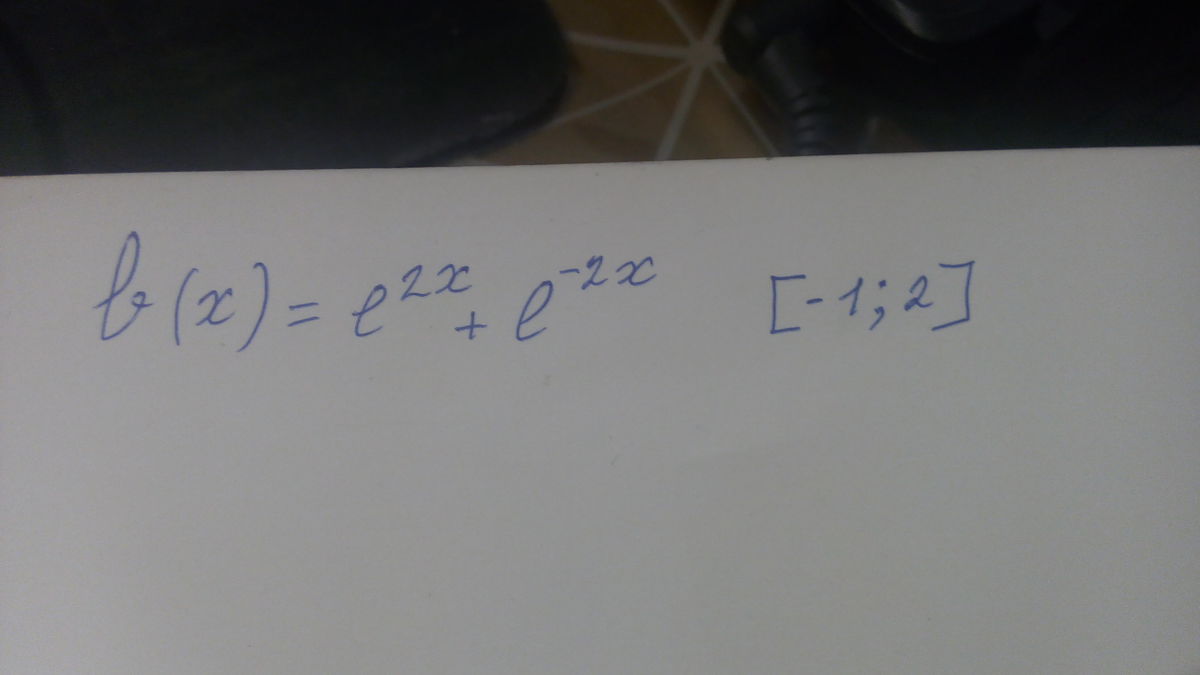 f(x) = e^{2x} + e^{-2x} [-1; 2]